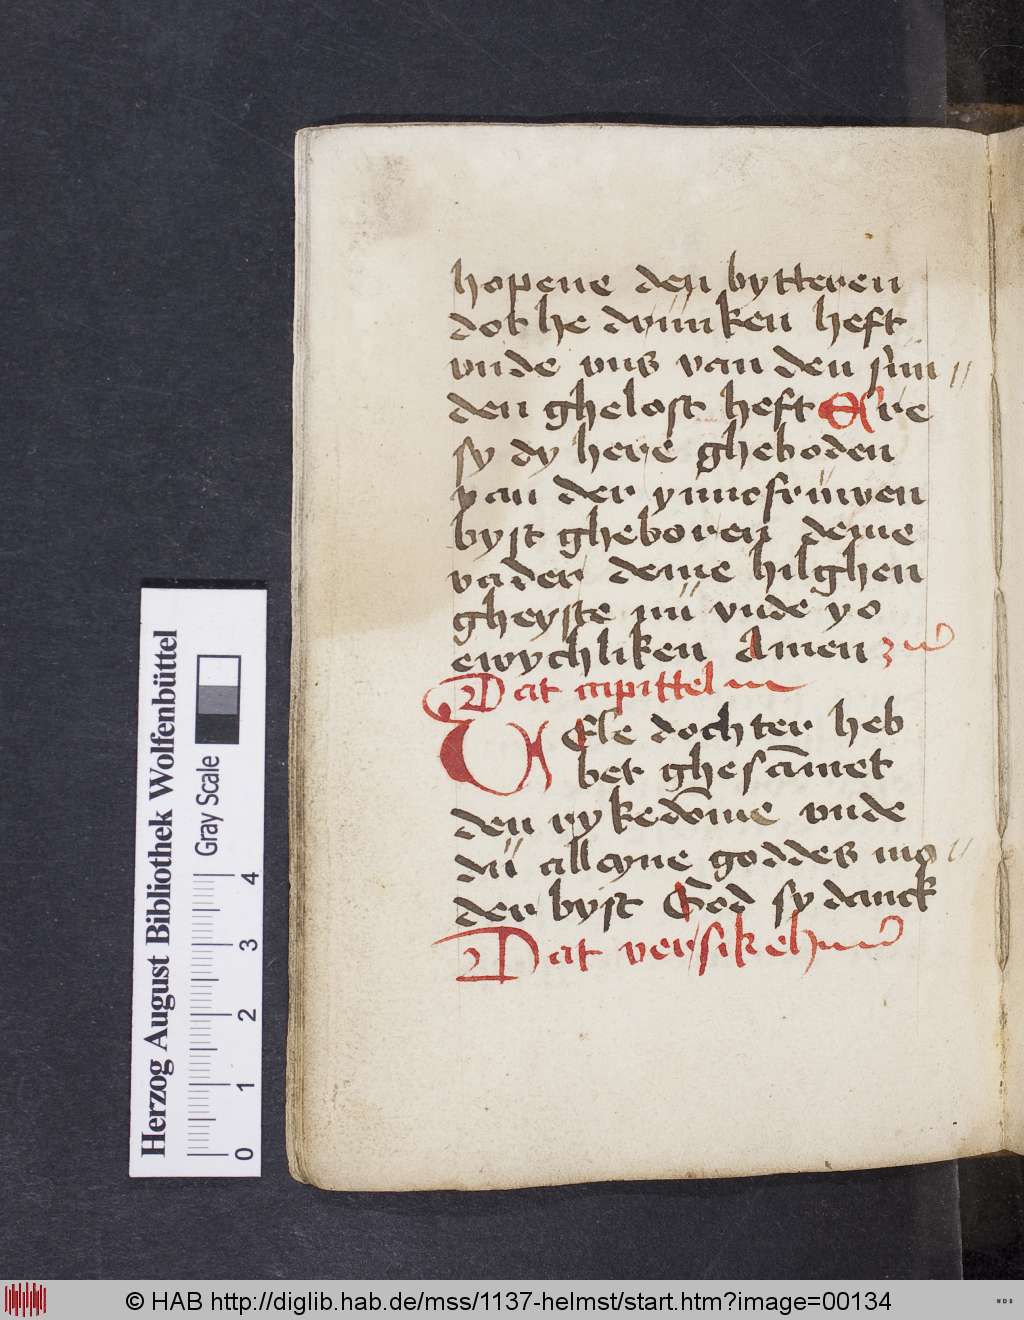 hopene den bytteren
dot he drünken heft
vnde vns van den sün〃
den ghelost heft Ere
sy dy here gheboden
van der yuncfrüwen
byst gheboren deme
vader deme hilghen
gheyste nü vnde yo
ewychliken Amen
Dat capittel
Vele dochter heb
ber ghesāmet
den rykedōme vnde
dü alleyne goddes mo〃
der byst God sy danck
Dat versikel
Herzog August Bibliothek Wolfenbüttel
Gray Scale
0 1 2 3 4
© HAB http://diglib.hab.de/mss/1137-helmst/start.htm?image=00134